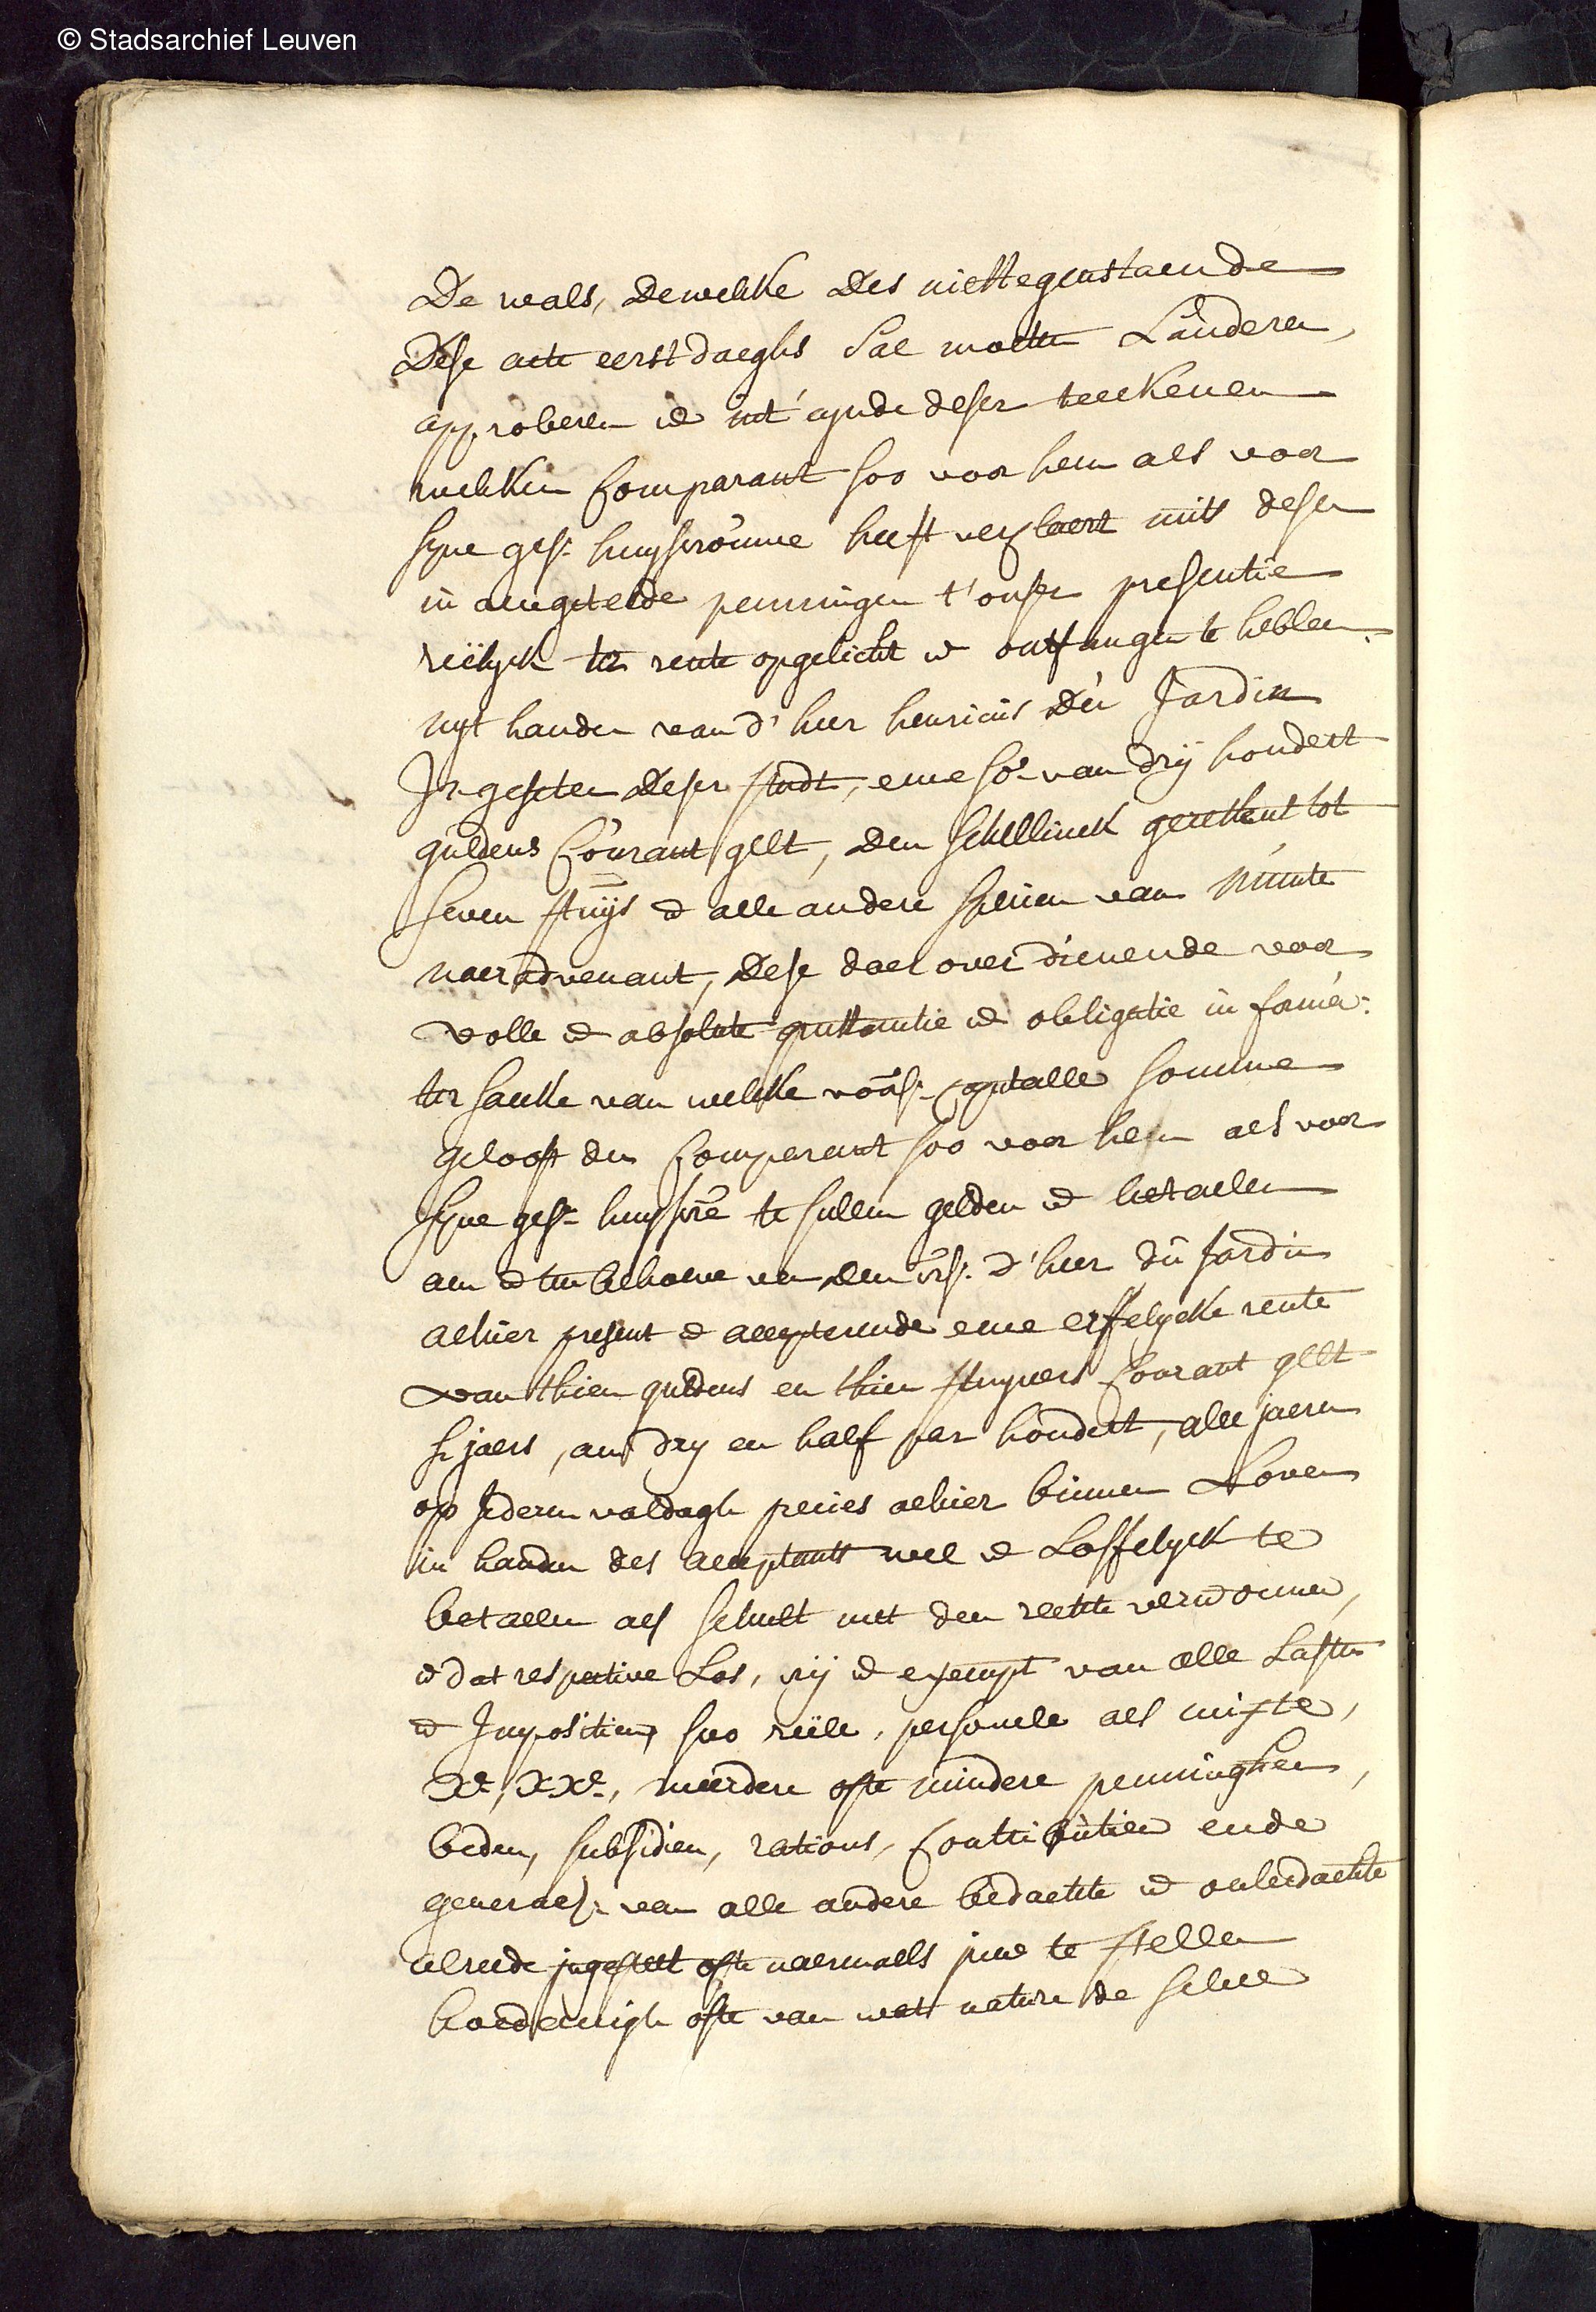 © Stadsarchief Leuven
De wals, dewelcke des niettegenstaende
dese acte eerstdaeghs sal moeten lauderen,
approberen ende int' eynde deser teeckenen
welcken comparant soo voor hem als voor
syne ges: huysvrouwe heeft verclaert mits desen
in aengetelde penningen t'onser presentie
reëlyck ter rente opgelicht ende ontfangen te hebben
uyt handen van d'heer henricus du Jardin
Ingeseten deser stadt, eene so.e van dry hondert
guldens courant gelt, den schellinck gerekent tot
seven stuys ende alle andere specien van munte
naer advenant, dese daer over dienende voor
volle ende absolute quittantie ende obligatie in forma:
ter saecke van welcke voors: capitaele somme
geloeft den comparant soo voor hem als voor
syne ges: huysvre te sullen gelden ende betaelen
aen ende ten behoeve van den vrs: d'heer du Jardin
alhier present ende accepterende eene erffelycke rente
van thien guldens en thien stuyvers courant gelt
s'jaers, aen dry en half per hondert, alle jaeren
op iederen valdagh precies alhier binnen Loven
in handen des acceptants wel ende loffelyck te
betaelen als schult met den rechte verwonnen,
ende dat respective los, vry ende exempt van alle lasten
ende Impositien, soo reële, personele als mixte,
Xe, XXe, meerdere ofte mindere penninghen,
beden, subsidien, rations, contributien ende
generael: van alle andere bedachte ende onbedachte
alreede ingestelt ofte naermaels jnne te stellen
hoedaenigh ofte van wat nature de selve